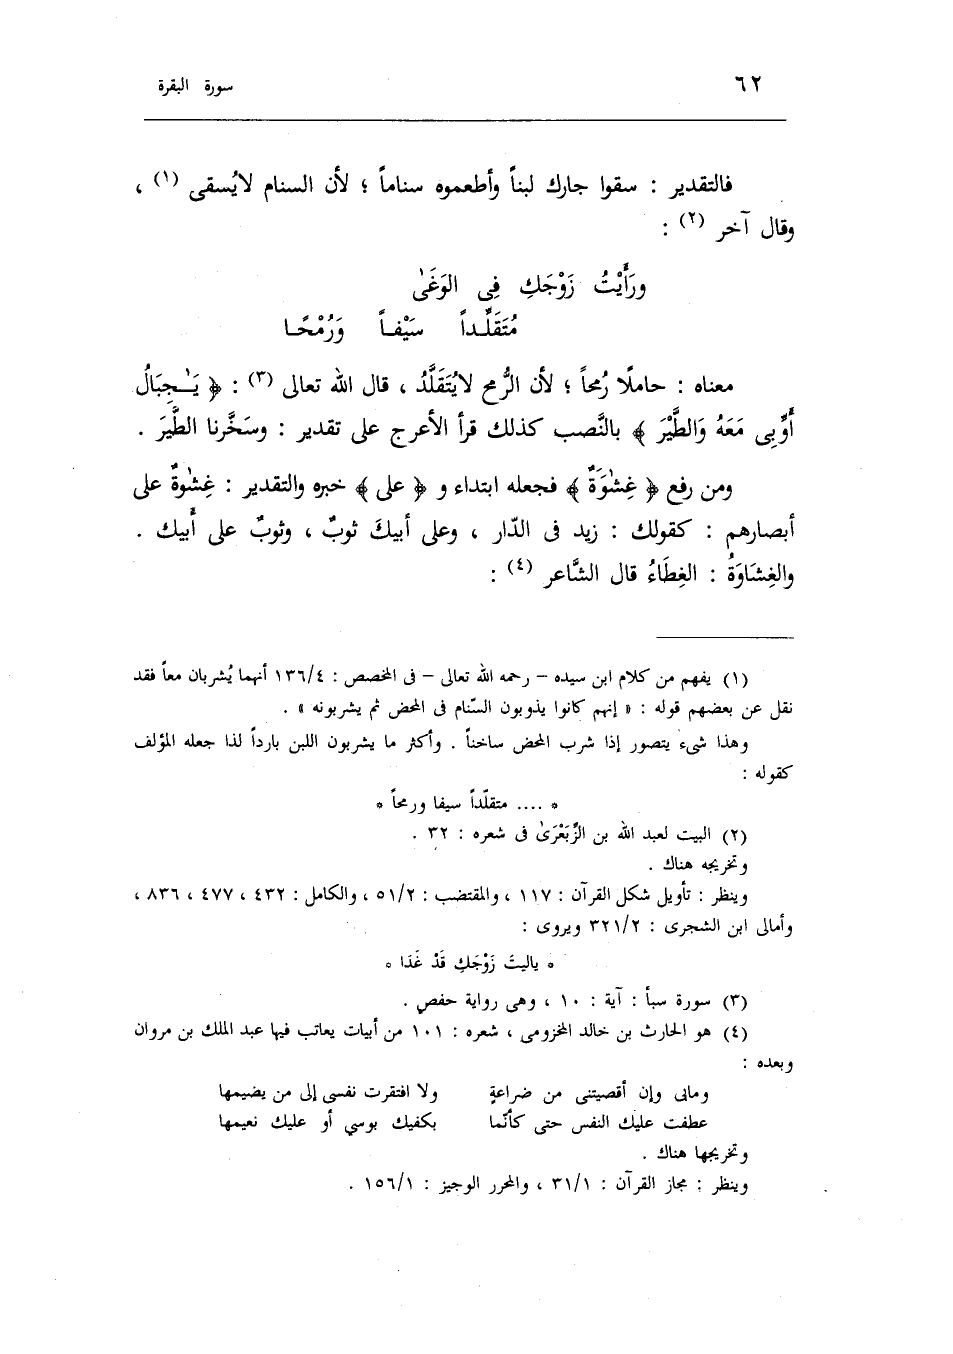 ٦٢
سورة البقرة
فالتقدير : سقوا جارك لبناً وأطعموه سناماً ؛ لأن السنام لايُسقى (١) ،
وقال آخر (٢) :
ورَأَيْتُ زَوْجَكِ فِى الوَغَىٰ
مُتَقَلِّـداً سَيْفـاً وَرُمْحًـا
معناه : حاملًا رُمحاً ؛ لأن الرُّمح لايُتَقَلَّدُ ، قال الله تعالى (٣) : ﴿ يَـٰجِبَالُ
أَوِّبِى مَعَهُ وَالطَّيْرَ ﴾ بالنَّصب كذلك قرأ الأعرج على تقدير : وسَخَّرنا الطَّيَر .
ومن رفع ﴿ غِشَٰوَةٌ ﴾ فجعله ابتداء و ﴿ على ﴾ خبره والتقدير : غِشٰوةٌ على
أبصارهم : كقولك : زيد فى الدّار ، وعلى أبيكَ ثوبٌ ، وثوبٌ على أَبيك .
والغِشَاوَةُ : الغِطَاءُ قال الشَّاعر (٤) :
(١) يفهم من كلام ابن سيده – رحمه الله تعالى – فى المخصص : ١٣٦/٤ أنهما يُشربان معاً فقد
نقل عن بعضهم قوله : « إنهم كانوا يذوبون السّنام فى المحض ثم يشربونه » .
وهذا شىء يتصور إذا شرب المحض ساخناً . وأكثر ما يشربون اللبن بارداً لذا جعله المؤلف
كقوله :
* .... متقلّداً سيفا ورمحاً *
(٢) البيت لعبد الله بن الزِّبَعْرَىٰ فى شعره : ٣٢ .
وتخريجه هناك .
وينظر : تأويل شكل القرآن : ١١٧ ، والمقتضب : ٥١/٢ ، والكامل : ٤٣٢ ، ٤٧٧ ، ٨٣٦ ،
وأمالى ابن الشجرى : ٣٢١/٢ ويروى :
* ياليتَ زَوْجَكِ قَدْ غَدَا *
(٣) سورة سبأ : آية : ١٠ ، وهى رواية حفص .
(٤) هو الحارث بن خالد المخزومى ، شعره : ١٠١ من أبيات يعاتب فيها عبد الملك بن مروان
وبعده :
ومابى وإن أقصيتنى من ضراعةٍ ولا افتقرت نفسى إلى من يضيمها
عطفت عليك النفس حتى كأنّما بكفيك بوسي أو عليك نعيمها
وتخريجها هناك .
وينظر : مجاز القرآن : ٣١/١ ، والمحرر الوجيز : ١٥٦/١ .